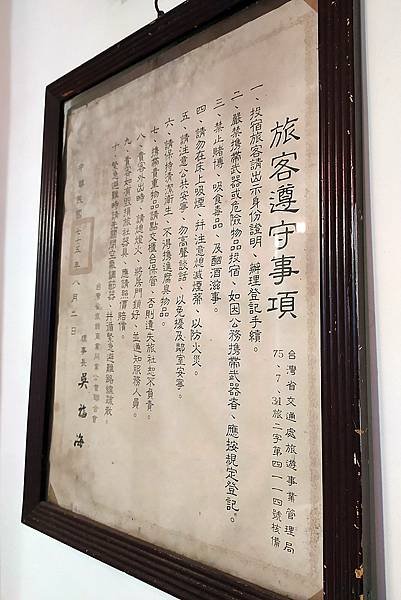 旅客遵守事項
台灣省交通處旅遊事業管理局
75、7、31旅二字第四一一四號核備
一、投宿旅客請出示身份證明、辦理登記手續。
二、嚴禁携帶武器或危險物品投宿、如因公務携帶武器者、應按規定登記。
三、禁止賭博、吸食毒品、及酗酒滋事。
四、請勿在床上吸煙、并注意熄滅煙蒂、以防火災。
五、請注意公共安寧、勿高聲談話、以免擾及鄰室安寧。
六、請保持清潔衛生、不得携進腐臭物品。
七、携帶貴重物品請點交櫃台保管、否則遺失旅社恕不負責。
八、貴客外出時、請熄燈火、將房門鎖好、並通知服務人員。
九、貴客如有毀損旅社器具、應請照價賠償。
十、緊急避難時請先關閉空氣調節器、并循緊急避難路線疏散。
理事長 吳
海
中華民國七十五年八月二日